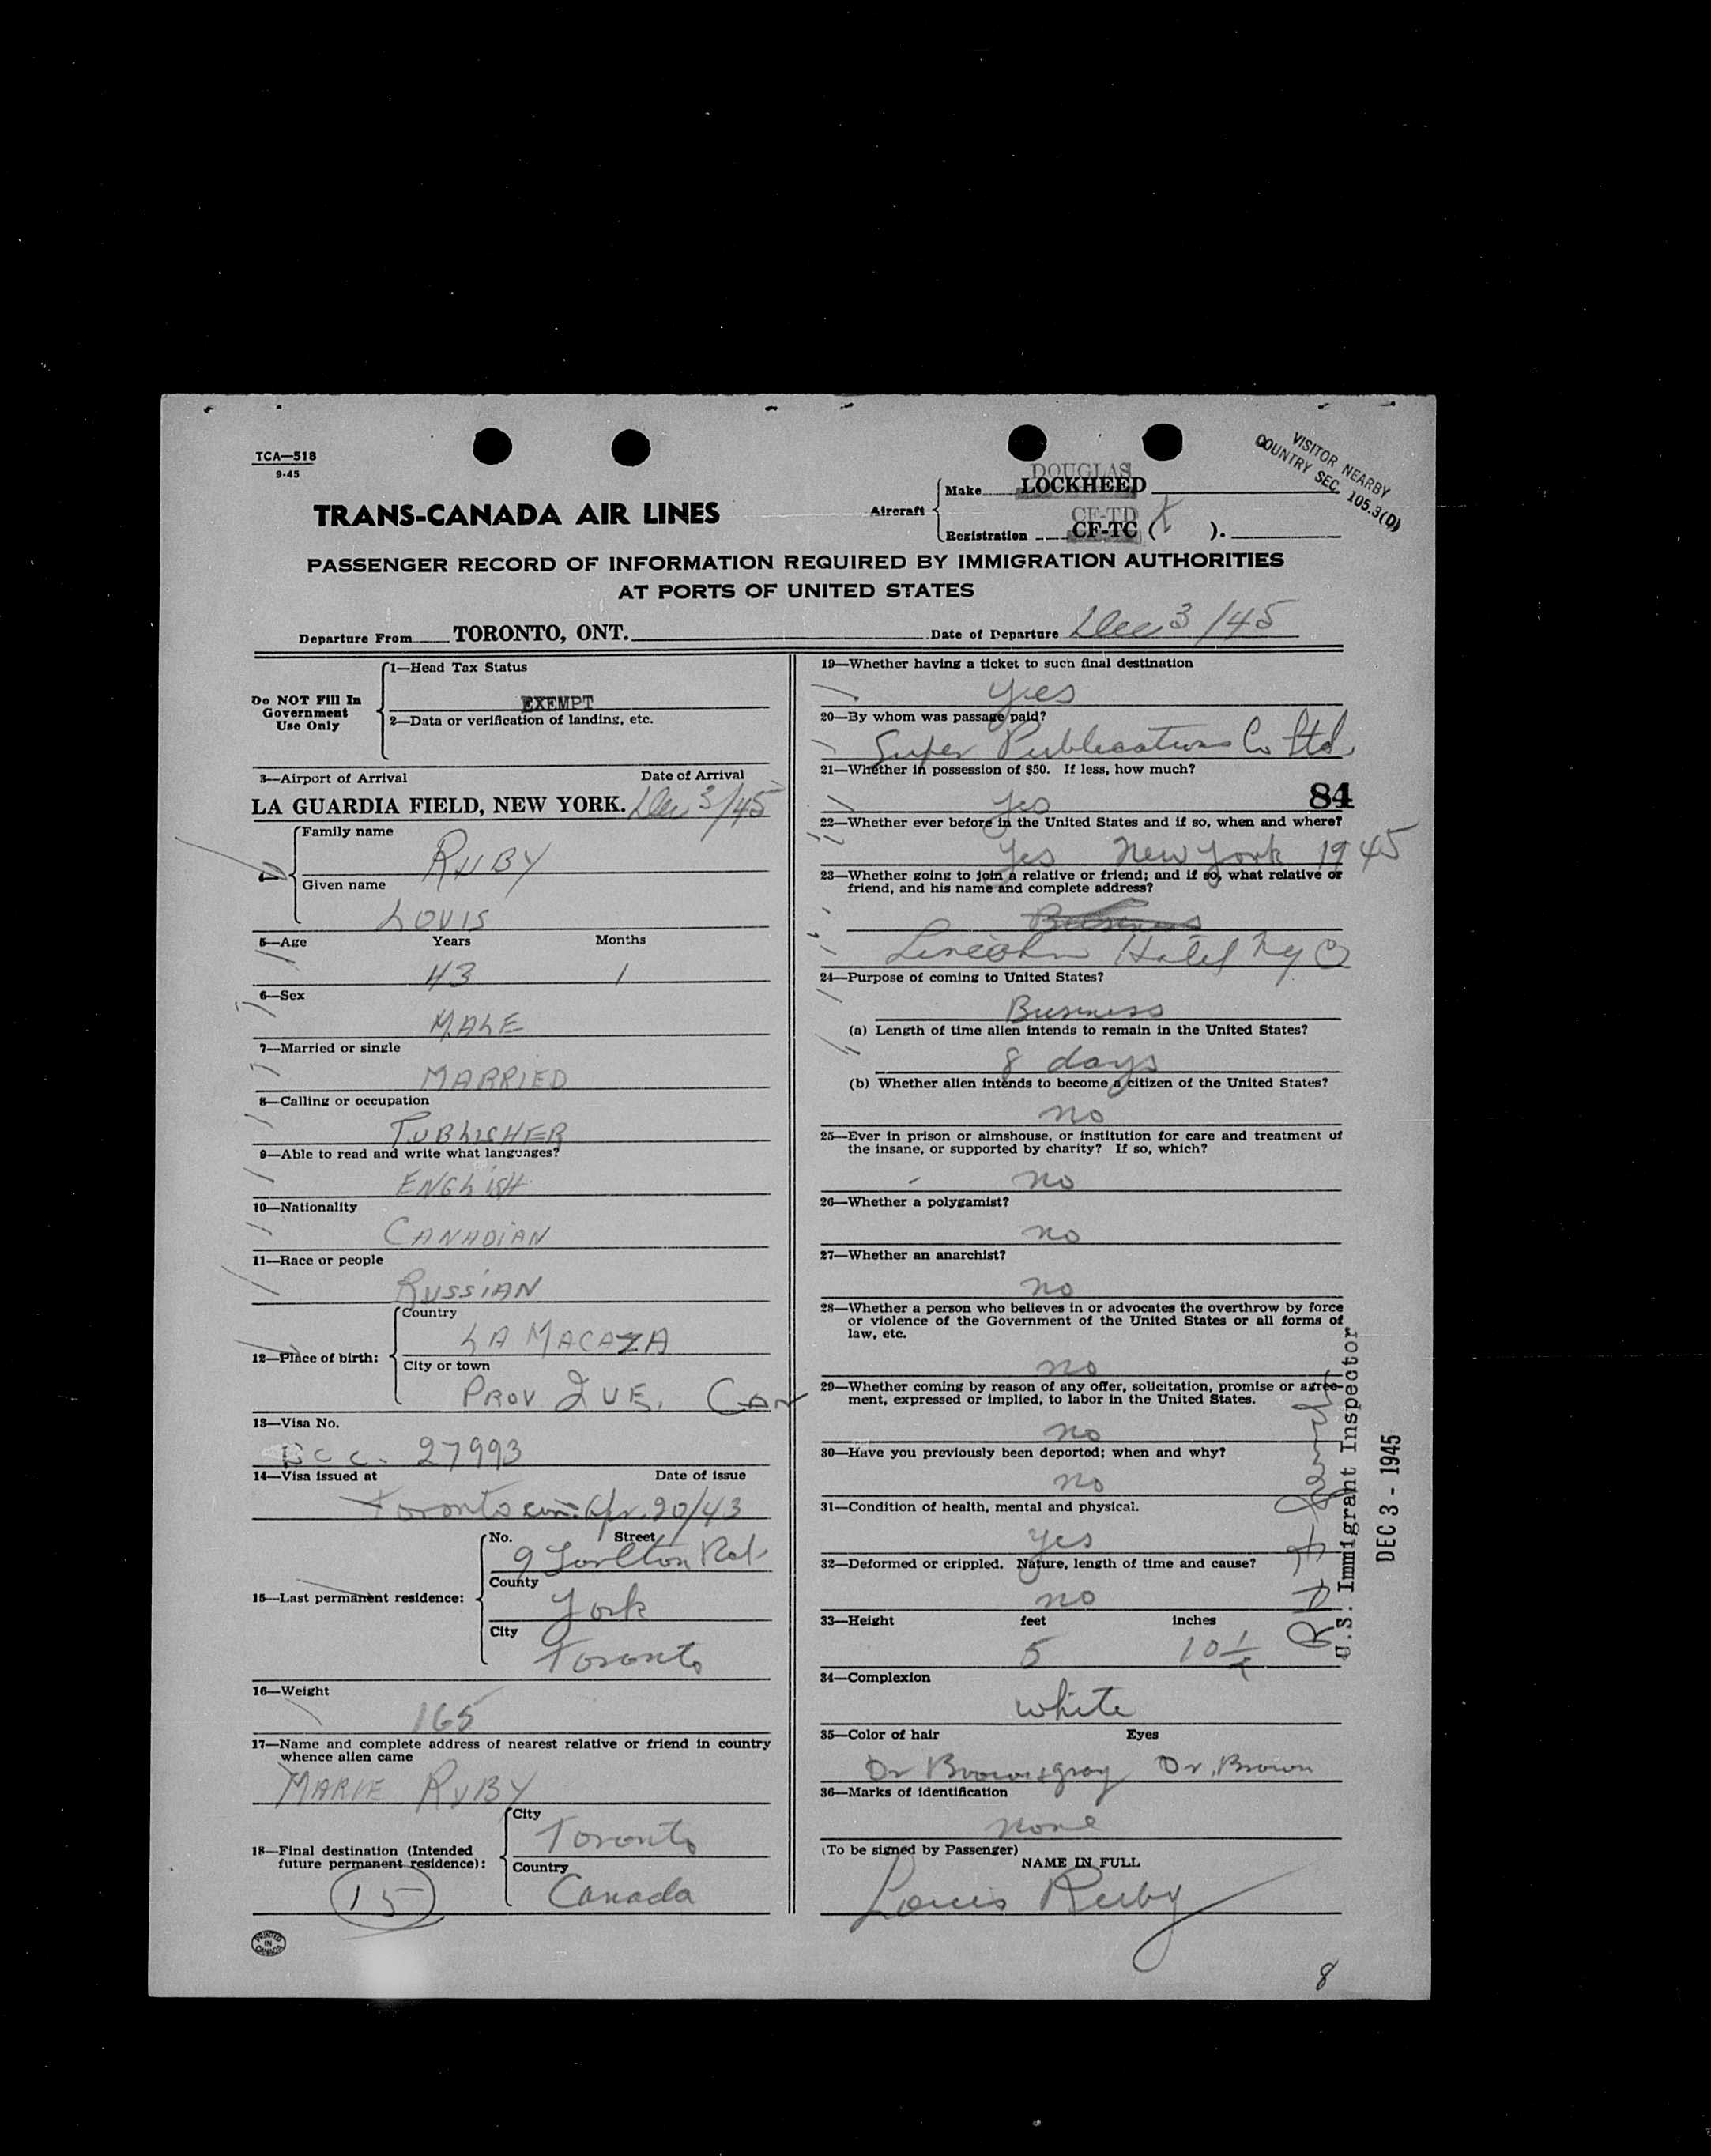 TCA—518
9-45
VISITOR NEARBY
COUNTRY SEC. 105.3(D)
TRANS-CANADA AIR LINES
Aircraft
DOUGLAS
Make LOCKHEED
CF-TD
Registration CF-TC ( K ).
PASSENGER RECORD OF INFORMATION REQUIRED BY IMMIGRATION AUTHORITIES
AT PORTS OF UNITED STATES
Departure From TORONTO, ONT. Date of Departure Dec 3/45
Do NOT Fill In
Government
Use Only
1—Head Tax Status
EXEMPT
2—Data or verification of landing, etc.
3—Airport of Arrival Date of Arrival
LA GUARDIA FIELD, NEW YORK. Dec 3/45
Family name
RUBY
Given name
LOUIS
5—Age Years Months
43 1
6—Sex
MALE
7—Married or single
MARRIED
8—Calling or occupation
PUBLISHER
9—Able to read and write what languages?
ENGLISH
10—Nationality
CANADIAN
11—Race or people
RUSSIAN
12—Place of birth:
Country
LA MACAZA
City or town
PROV QUE. CAN
13—Visa No.
BCC. 27993
14—Visa issued at Date of issue
Toronto Apr. 20/43
15—Last permanent residence:
No. Street
9 Rd.
County
York
City
Toronto
16—Weight
165
17—Name and complete address of nearest relative or friend in country
whence alien came
MARIE RUBY
18—Final destination (Intended
future permanent residence):
City
Toronto
Country
Canada
15
PRINTED
IN
CANADA
19—Whether having a ticket to such final destination
Yes
20—By whom was passage paid?
Super Publications Co Ltd.
21—Whether in possession of $50. If less, how much?
Yes 84
22—Whether ever before in the United States and if so, when and where?
Yes New York 1945
23—Whether going to join a relative or friend; and if so, what relative or
friend, and his name and complete address?
Business
Lincoln Hotel NyC
24—Purpose of coming to United States?
Business
(a) Length of time alien intends to remain in the United States?
8 days
(b) Whether alien intends to become a citizen of the United States?
no
25—Ever in prison or almshouse, or institution for care and treatment of
the insane, or supported by charity? If so, which?
no
26—Whether a polygamist?
no
27—Whether an anarchist?
no
28—Whether a person who believes in or advocates the overthrow by force
or violence of the Government of the United States or all forms of
law, etc.
no
29—Whether coming by reason of any offer, solicitation, promise or agree-
ment, expressed or implied, to labor in the United States.
no
30—Have you previously been deported; when and why?
no
31—Condition of health, mental and physical.
Yes
32—Deformed or crippled. Nature, length of time and cause?
no
33—Height feet inches
5 10 1/2
34—Complexion
white
35—Color of hair Eyes
Dr Brown & gray Dr. Brown
36—Marks of identification
None
(To be signed by Passenger)
NAME IN FULL
Louis Ruby
U.S. Immigrant Inspector
DEC 3 - 1945
8